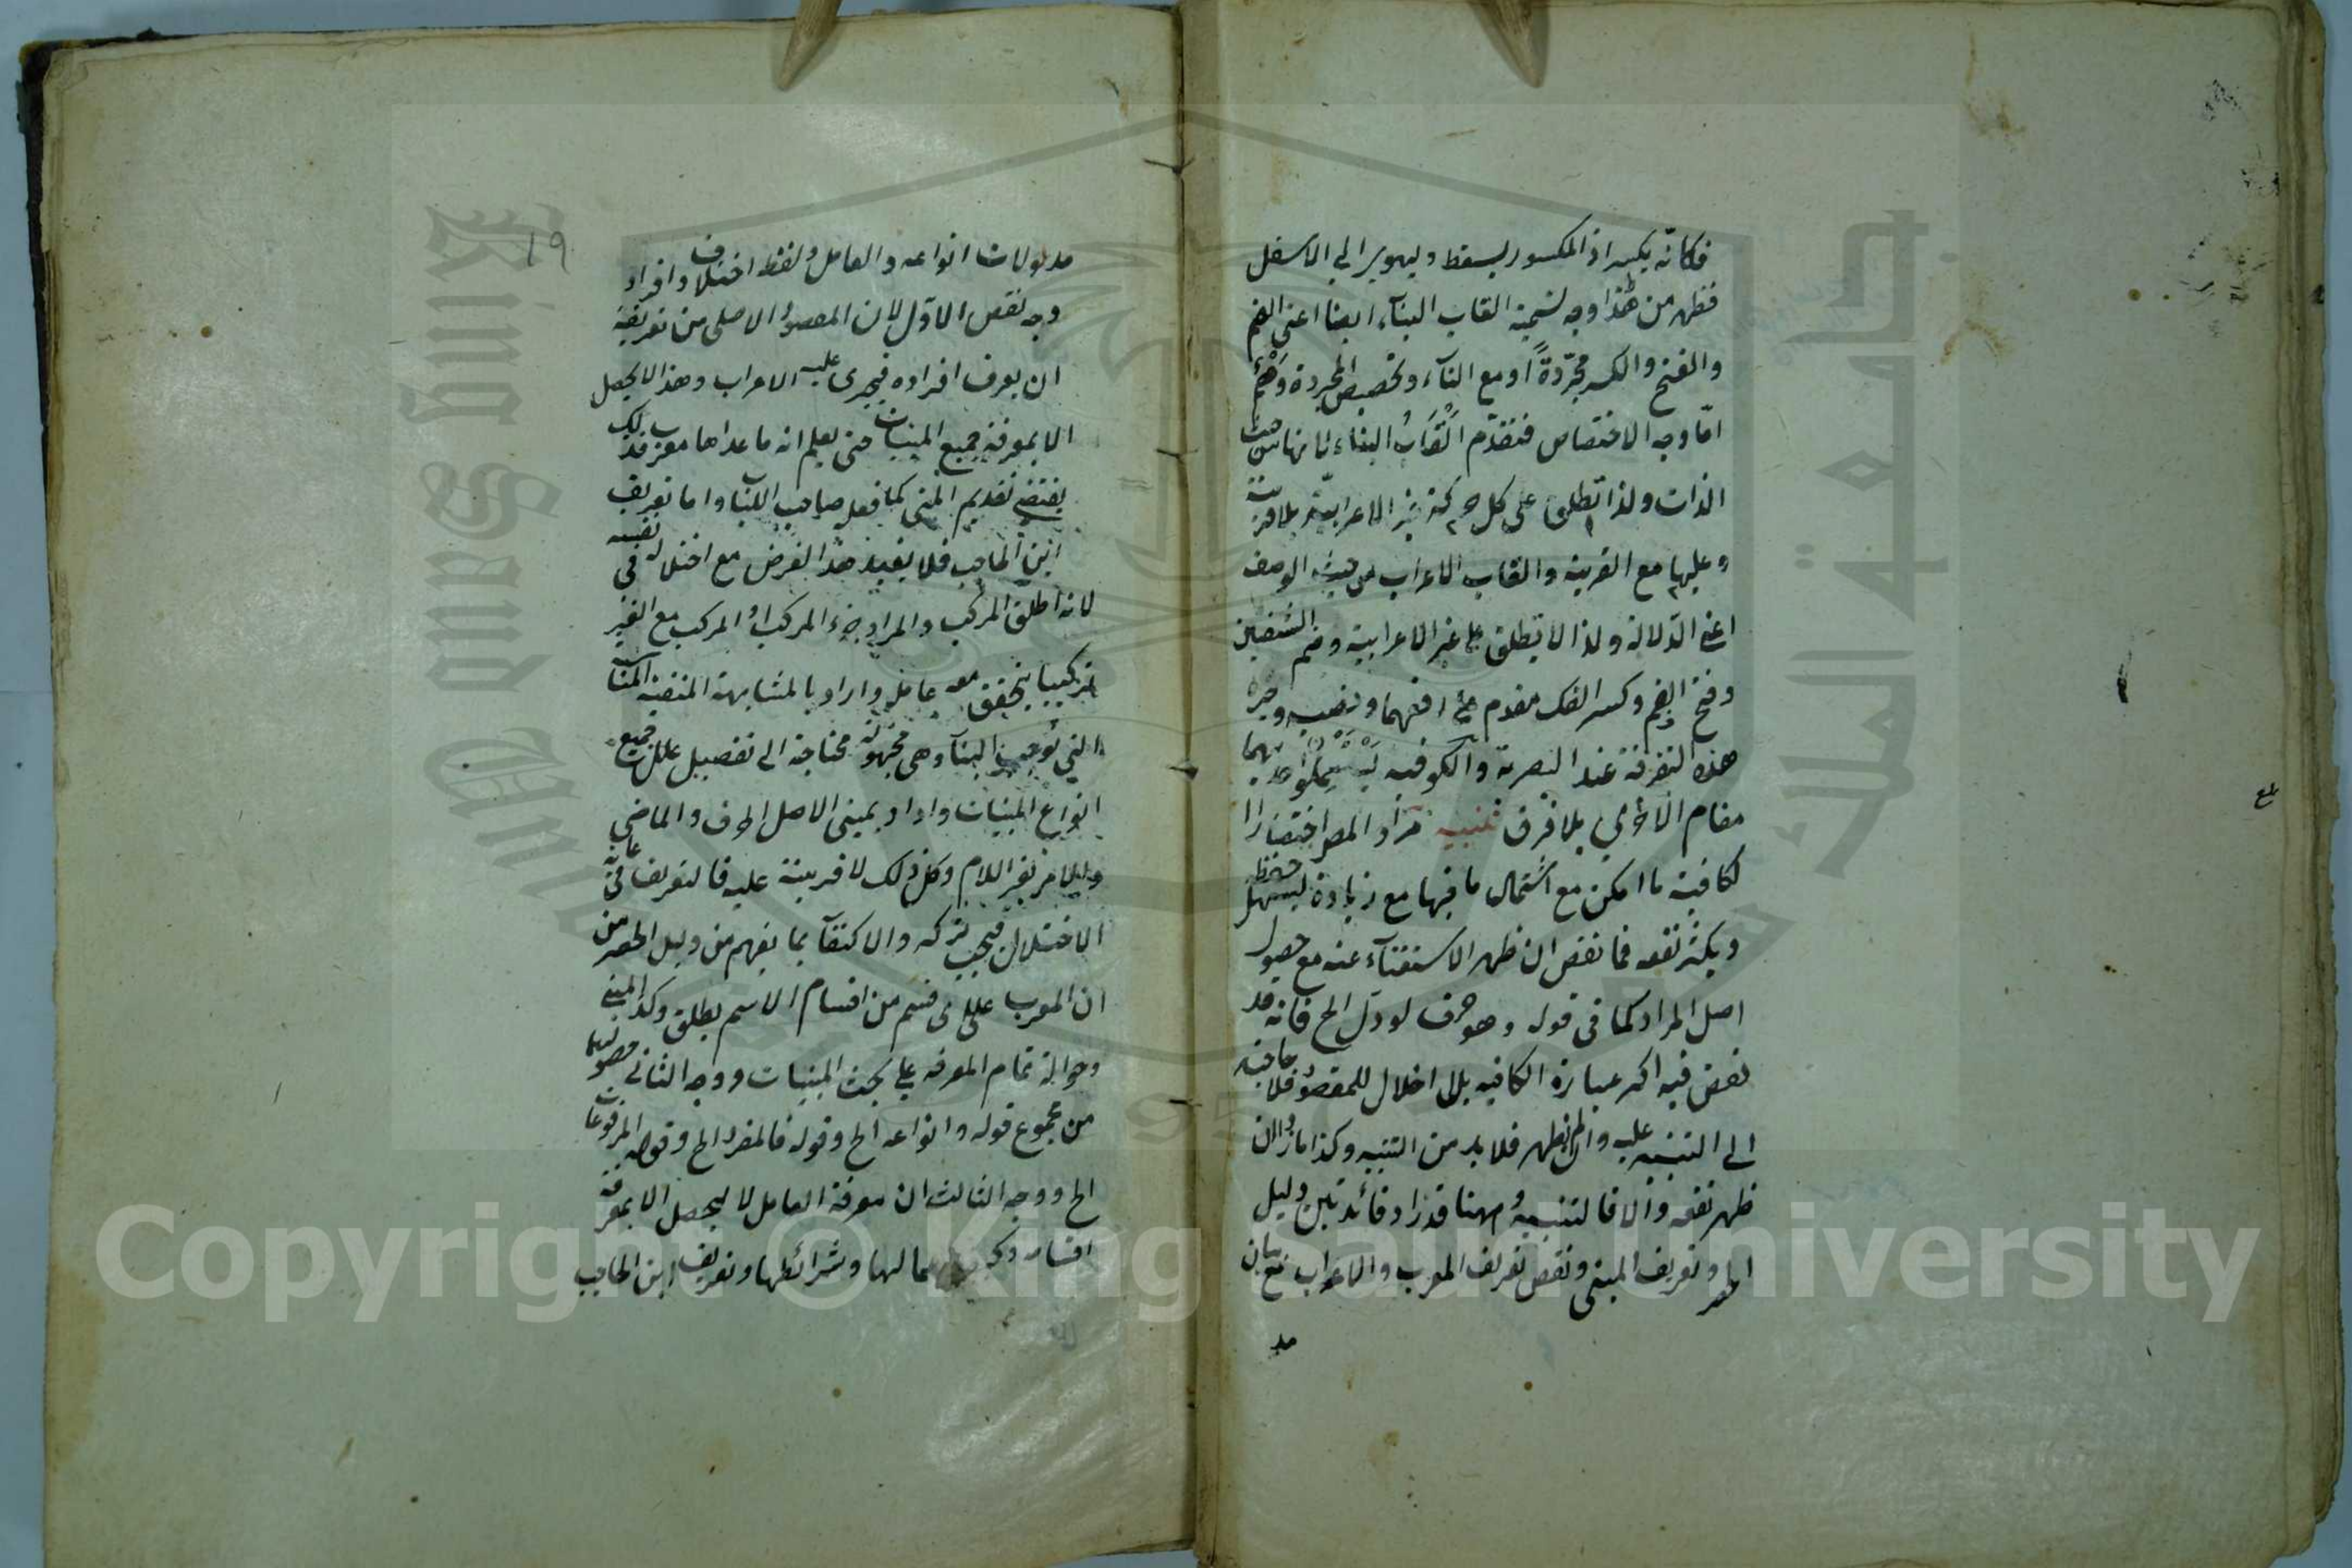 فكانّه يكسر اذ المكسور يسقط ويهوى الى الاسفل
فظهر من هذا وجه تسمية القاب البناء ايضا اعنى الضم
والفتح والكسر مجرّدةً او مع التاء وتخصيص المجردة
امّا وجه الاختصاص فتقدّم القابُ البناء لانها من حيث
الذات ولذا تطلق على كل حركة غير الاعرابيّة بلا قرينة
وعليها مع القرينة والقاب الاعراب من حيث الوصف
اعنى الدّلالة ولذا لا تطلق على غير الاعرابية وضم الشفتين
وفتح الفم وكسر الفك مقدم على رفعهما ونصبه وجره
هذه التفرقة عند البصرية والكوفيه يستعملوا احديهما
مقام الاخرى بلا فرق تنبيه اراد المص اختصار ا
لكافية ما امكن مع اشتمال ما فيها مع زيادة ليسهل حفظه
ويكثر نفعه فما نقص ان ظهر الاستغناء عنه مع حصول
اصل المراد كما فى قوله وهو حرف لو دل الخ فانه قد
نقص فيه اكثر عبارة الكافيه بلا اخلال للمقصود فلا حاجة
الى التنبيه عليه وان لم يظهر فلا بد من التنبيه وكذا ما زاد ان
ظهر نفعه والا فالتنبيه وههنا قد زاد فائدتين دليل
الحصر وتعريف المبنى ونقص تعريف المعرب والاعراب مع بيان
مد
19
مدلولات انواعه والعامل ولفظ اختلاف وافراد
وجه نقص الاوّل لان المقصود الاصلى من تعريفه
ان يعرف افراده فيجرى عليه الاعراب وهذا لا يحصل
الا بمعرفة جميع المبنيات حتى يعلم انه ما عداها معرب فذلك
يقتضى تقديم المبنى كما فعل صاحب اللباب واما تعريف
ابن الحاجب فلا يفيد هذا الغرض مع اختلاله فى نفسه
لانه اطلق المركب والمراد جزء المركب او المركب مع الغير
تركيبا يتحقق معه عامله واراد بالمشابهة المنفية المشابهة
التى توجب البناء وهى مجهولة محتاجة الى تفصيل علل جميع
انواع المبنيات واراد بمبنى الاصل الحرف والماضى
والامر بغير اللام وكل ذلك لا قرينة عليه فالتعريف فى غاية
الاختلال فيجب تركه والاكتفاء بما يفهم من دليل الحصر من
ان المعرب على اى قسم من اقسام الاسم يطلق وكذا المبنى
وحوالة تمام المعرفة على بحث المبنيات ووجه الثانى حصولهما
من مجموع قوله وانواعه الخ وقوله فالمفرد الخ وقوله المرفوعات
الخ ووجه الثالث ان معرفة العامل لا يحصل الا بمعرفة
اقسامه وكيفية اعمالها وشرائطها وتعريف ابن الحاجب
Copyright © King Saud University
King Saud University
جامعة الملك سعود